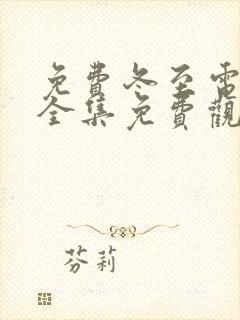 免費冬至電
全集免費觀
芬莉